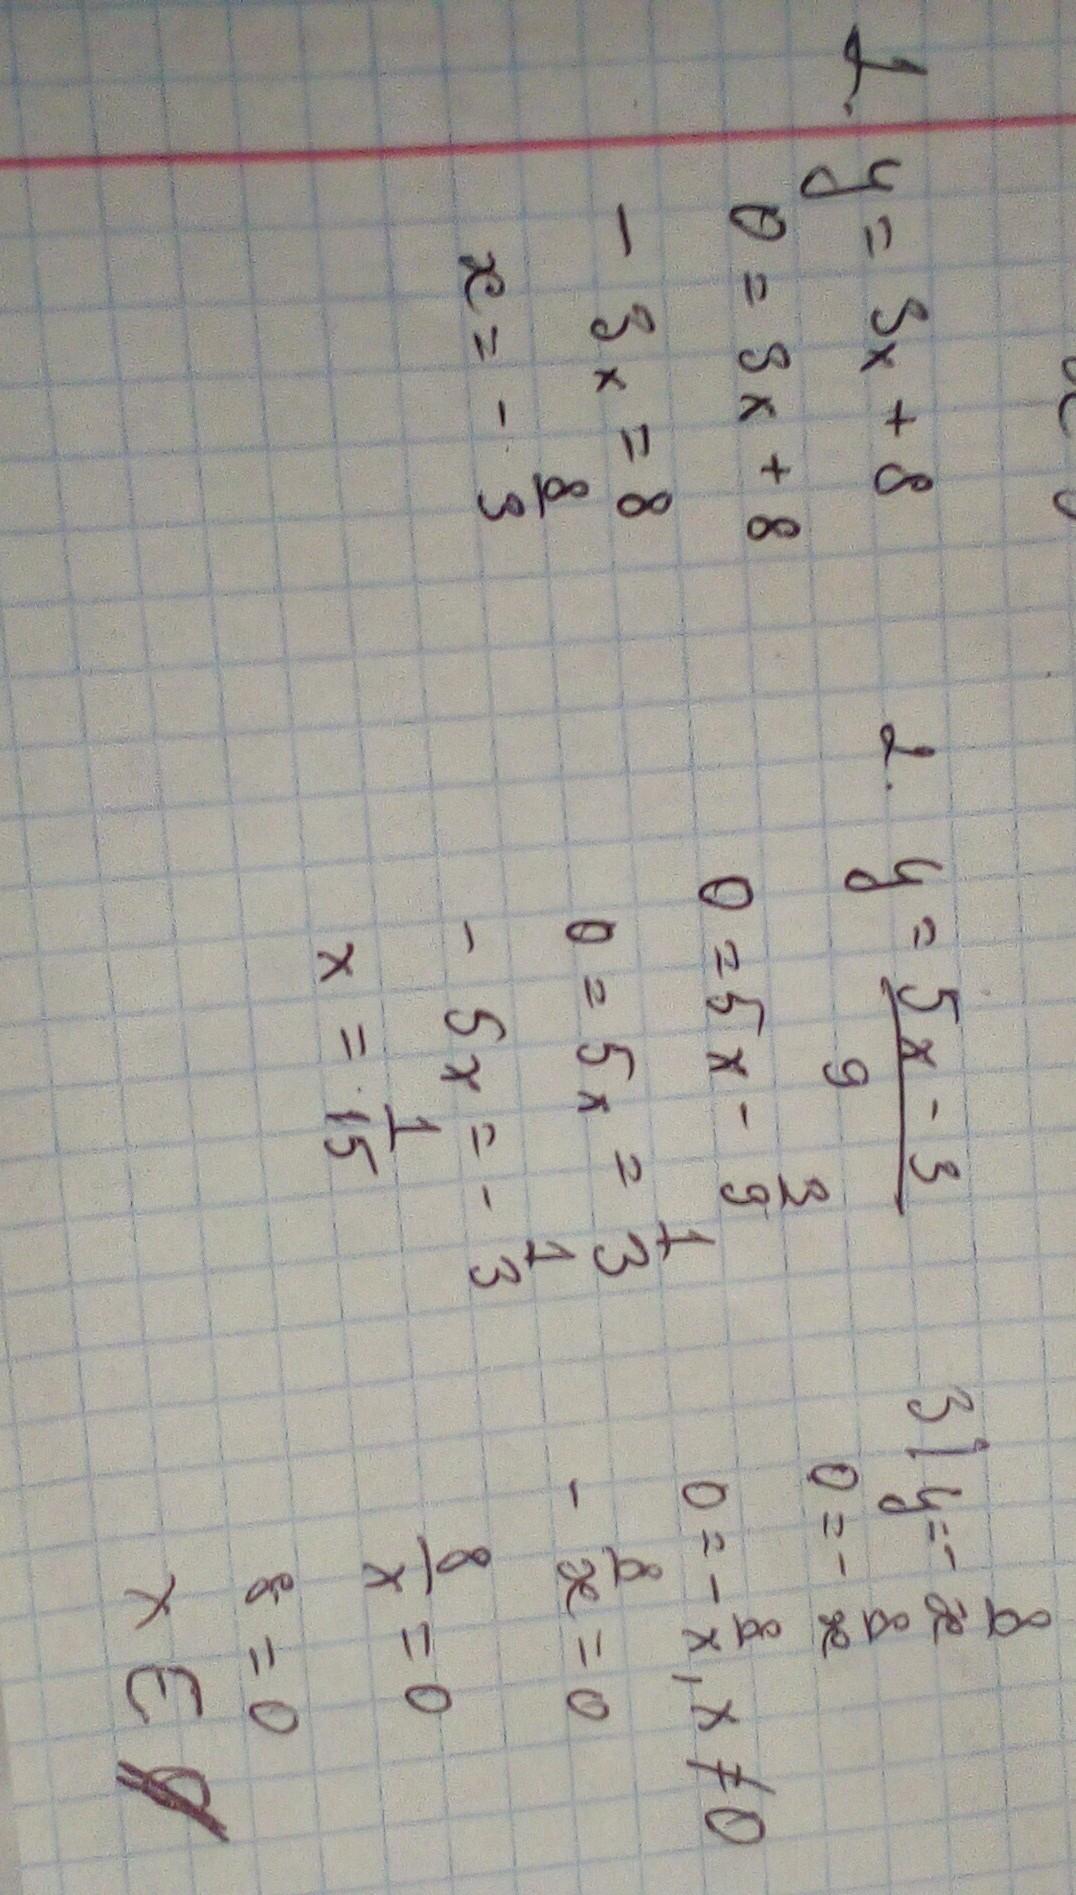 1. y = 3x + 8
0 = 3x + 8
- 3x = 8
x = - 8/3
2. y = 5x - 3/9
0 = 5x - 3/9
0 = 5x = 1/3
- 5x = - 1/3
x = 1/15
3) y = - 8/x
0 = - 8/x
0 = - 8/x, x ≠ 0
- 8/x = 0
8/x = 0
8 = 0
x ∈ ∅